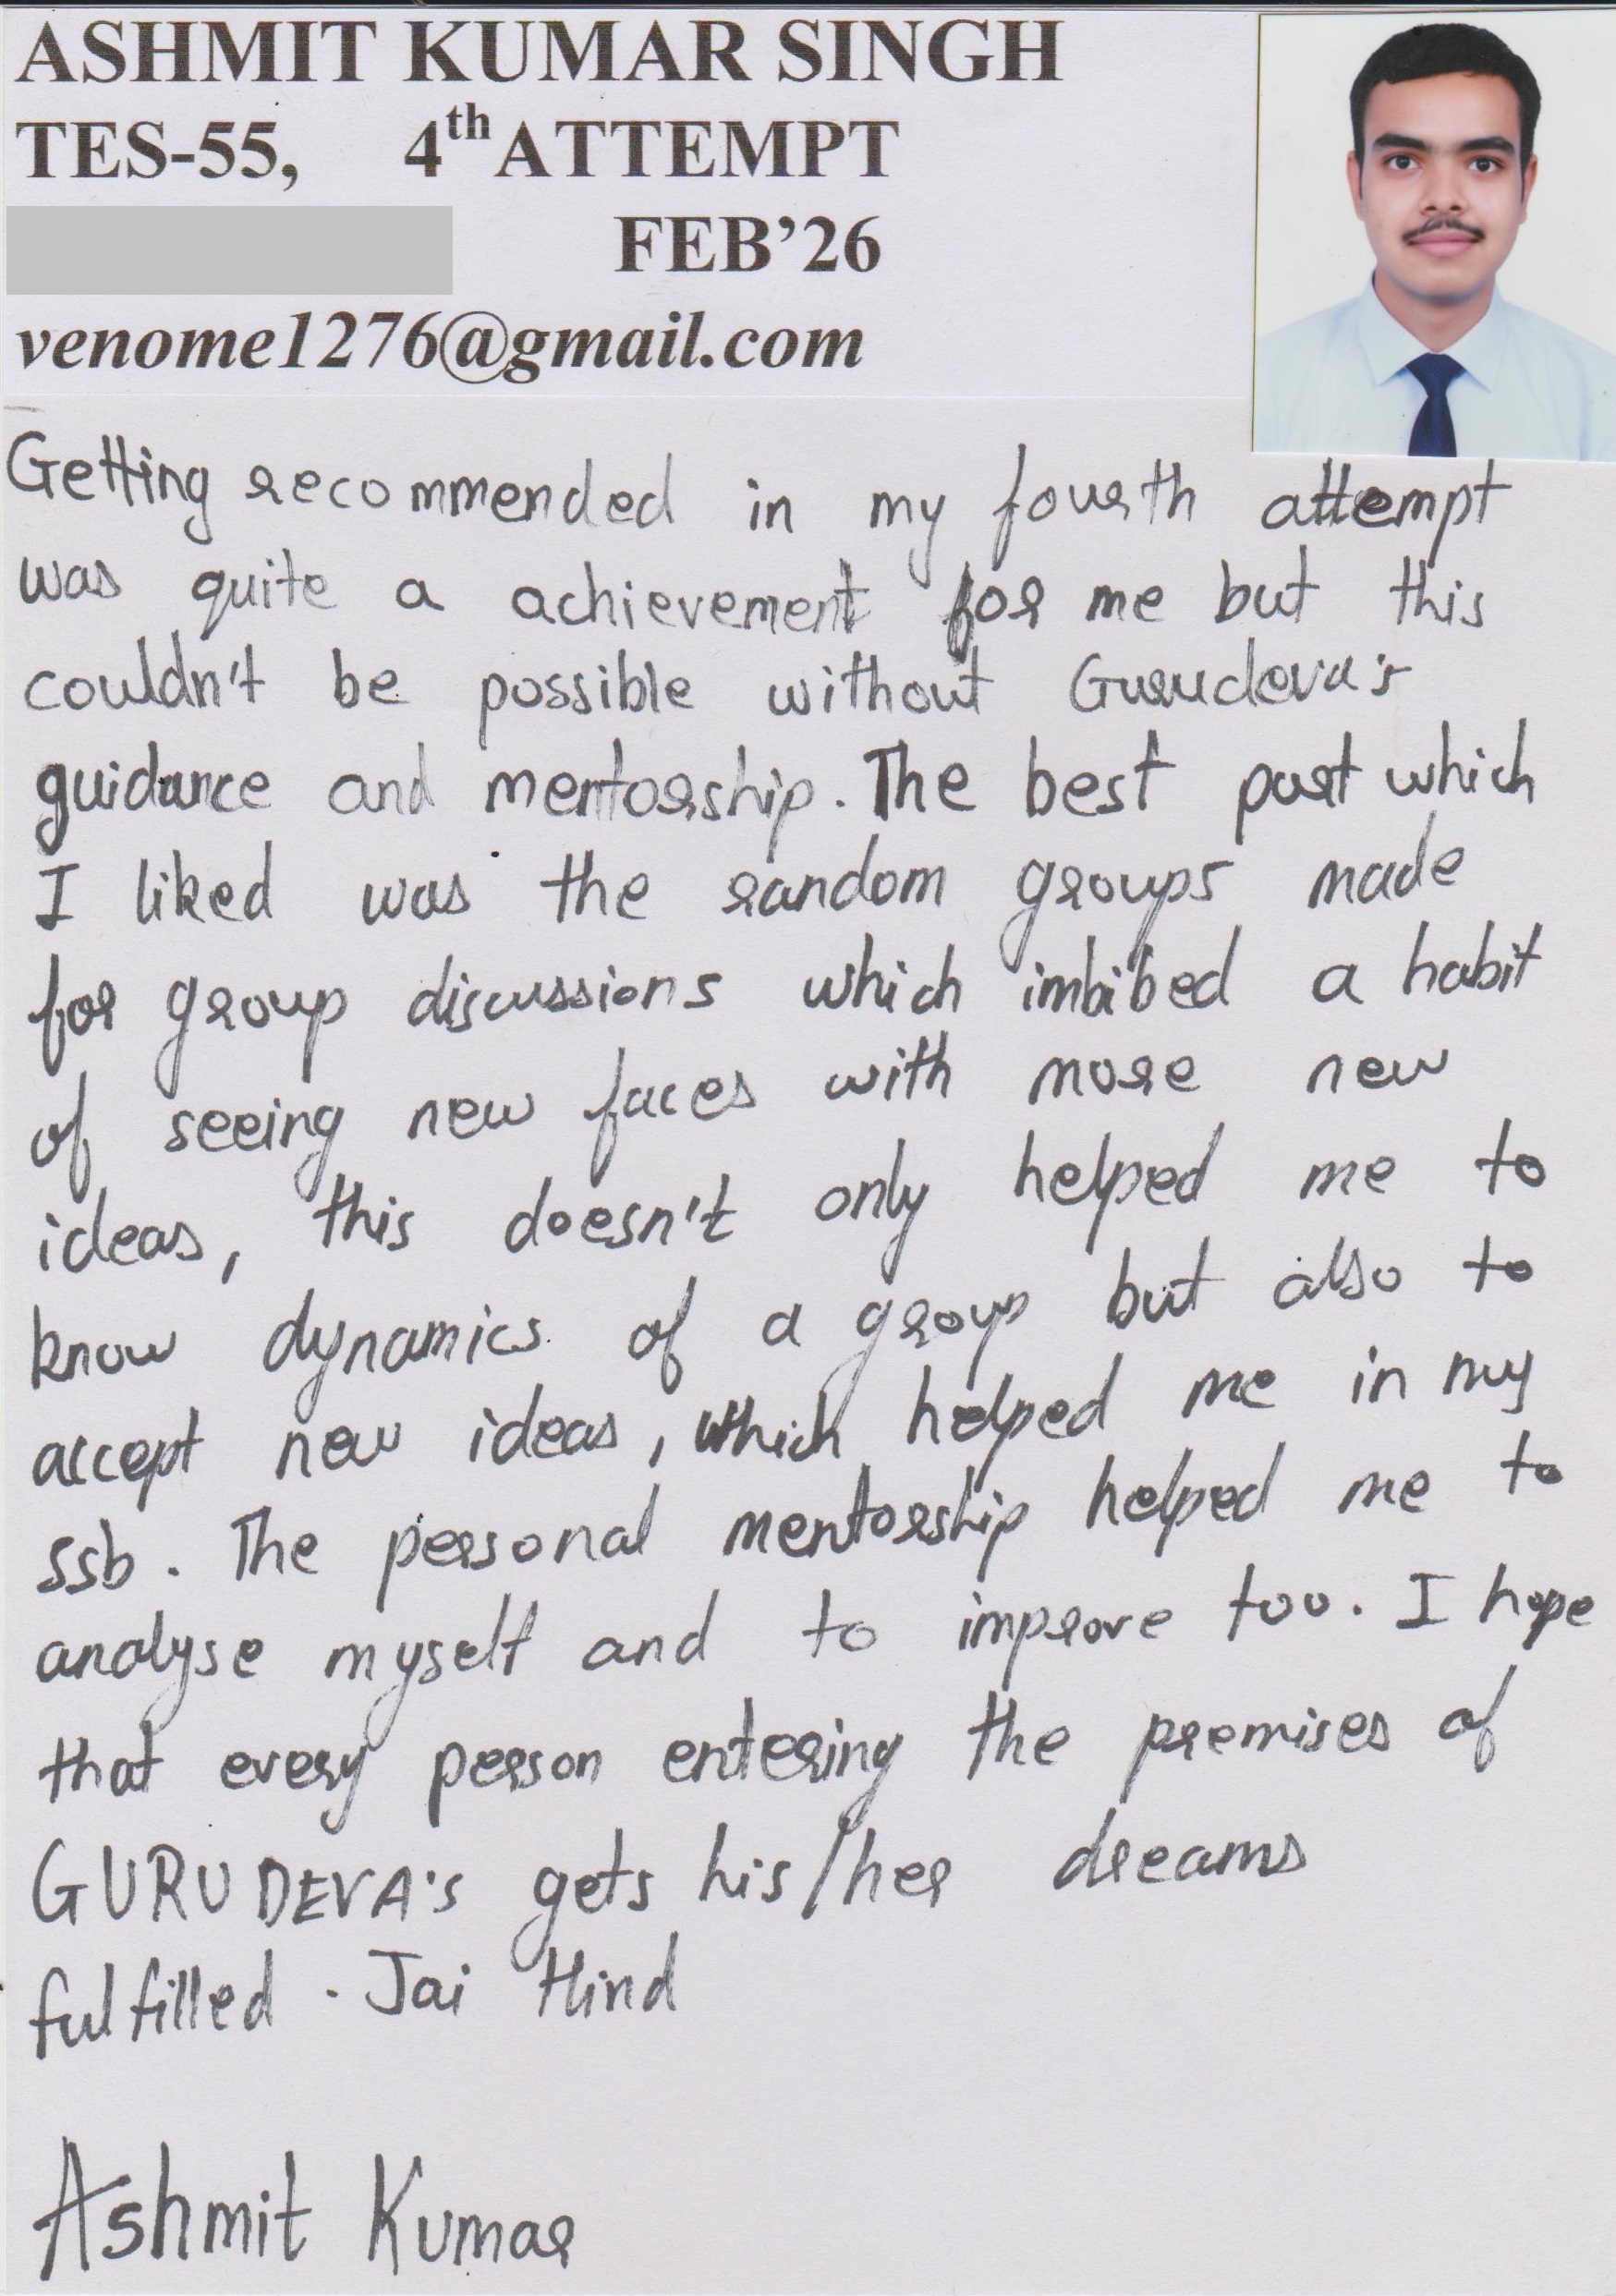 ASHMIT KUMAR SINGH
TES-55, 4th ATTEMPT
FEB'26
venome1276@gmail.com
Getting recommended in my fourth attempt
was quite a achievement for me but this
couldn't be possible without Gurudeva's
guidance and mentorship. The best part which
I liked was the random groups made
for group discussions which imbibed a habit
of seeing new faces with more new
ideas, this doesn't only helped me to
know dynamics of a group but also to
accept new ideas, which helped me in my
ssb. The personal mentorship helped me to
analyse myself and to improve too. I hope
that every person entering the premises of
GURUDEVA's gets his/her dreams
fulfilled. Jai Hind
Ashmit Kumar